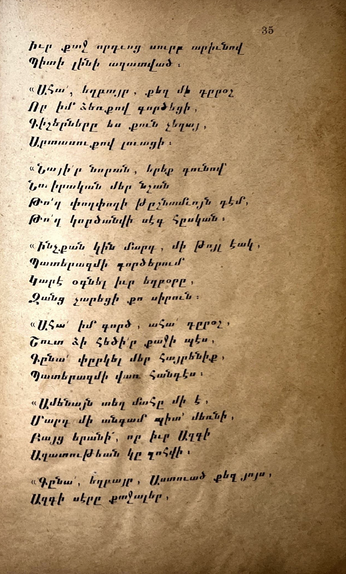 35
Իւր քաջ որդւոց սուրբ արիւնով
Պիտի լինի ազատված։
«Ահա՛, եղբայր, քեզ մի դրօշ
Որ իմ ձեռքով գործեցի,
Գիշերները ես քուն չեղայ,
Արտասուքով լուացի։
«Նայի՛ր նորան, երեք գունով
Նուիրական մեր նշան
Թո՛ղ փողփողի թշնամւոյն դէմ,
Թո՛ղ կործանվի սէգ հրսկան։
«Ինչքան կին մարդ, մի թոյլ էակ,
Պատերազմի գործերում
Կարէ օգնել իւր եղբօրը,
Զանց չարեցի քո սիրուն։
«Ահա՛ իմ գործ, ահա՛ դրօշ,
Շուտ ձի հեծի՛ր քաջի պէս,
Գընա՛ փըրկել մեր հայրենիք,
Պատերազմի վառ հանդէս։
«Ամենայն տեղ մահը մի է,
Մարդ մի անգամ պիտ՛ մեռնի,
Բայց երանի՛, որ իւր Ազգի
Ազատութեան կը զոհվի։
«Գընա՛, եղբայր, Աստուած քեզ յոյս,
Ազգի սէրը քաջալեր,